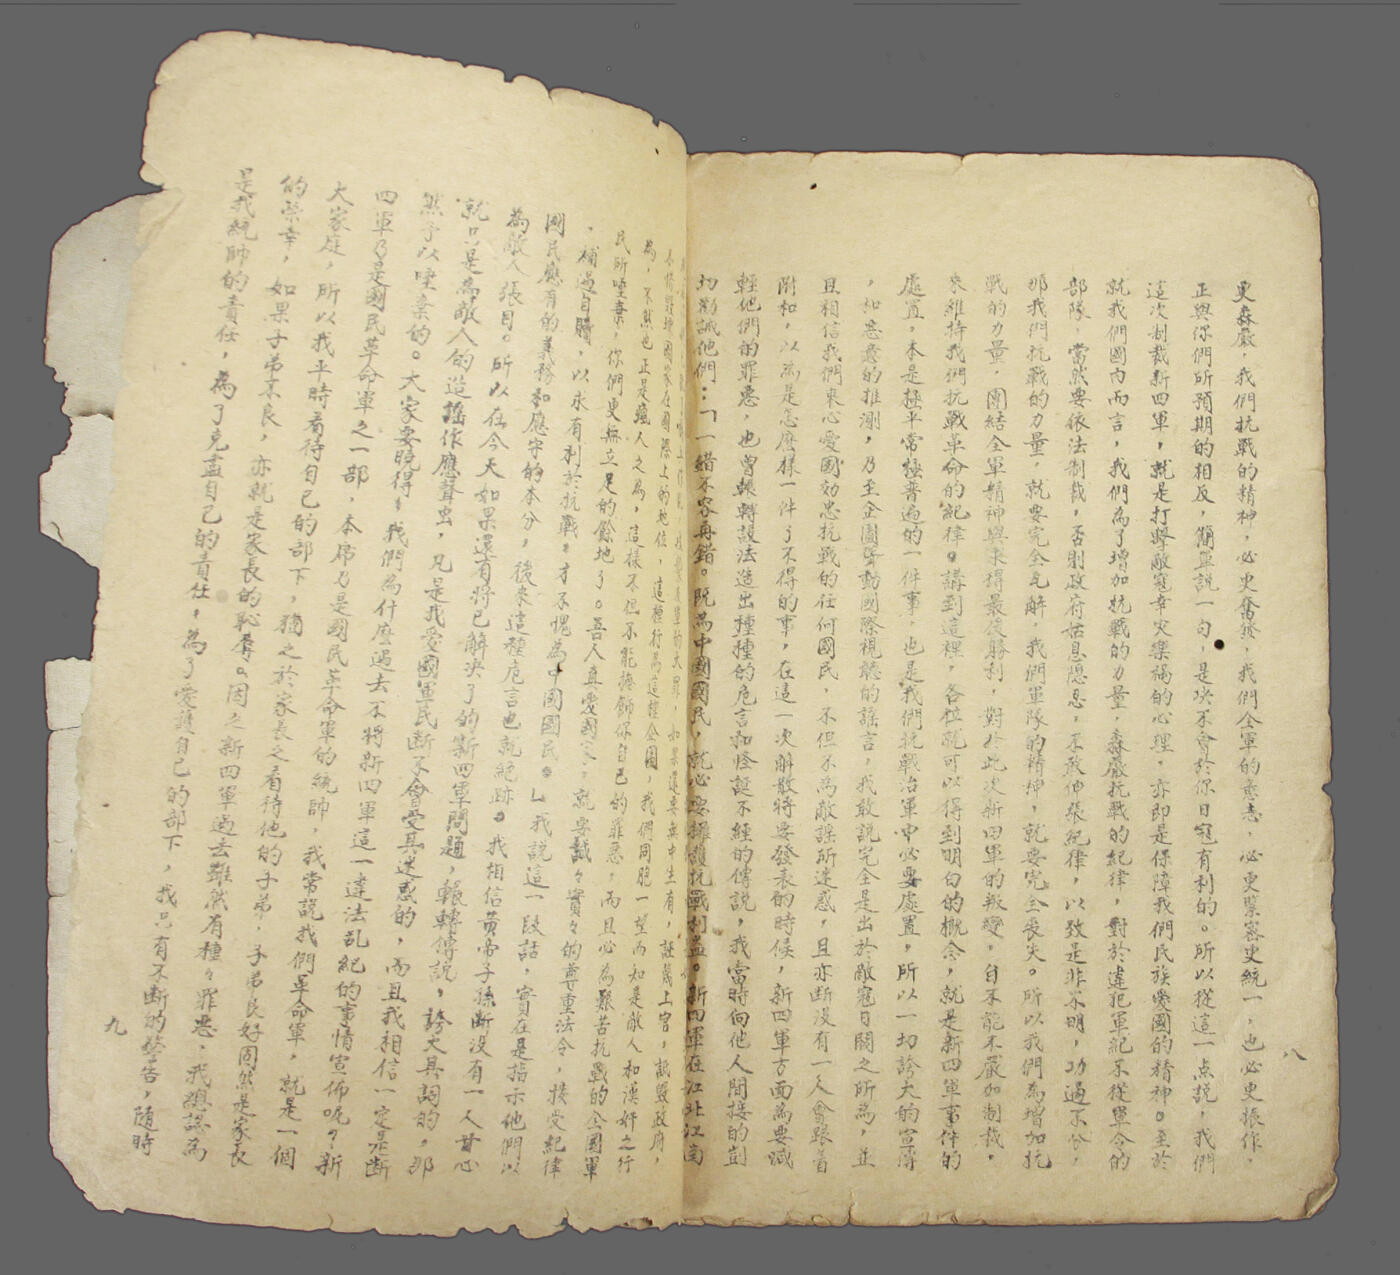 更森嚴，我們抗戰的精神，必更奮發，我們全軍的意志，必更緊密更統一，也必更振作，
正與你們所預期的相反，簡單説一句，是決不會於你日寇有利的。所以從這一点説，我們
這次制裁新四軍，就是打擊敵寇幸灾樂禍的心理，亦即是保障我們民族愛國的精神。至於
就我們國內而言，我們為了增加抗戰的力量，森嚴抗戰的紀律，對於違犯軍紀不從軍令的
部隊，當然要依法制裁，否則政府姑息隱忍，不敢伸張紀律，以致是非不明，功過不分，
那我們抗戰的力量，就要完全瓦解，我們軍隊的精神，就要完全喪失。所以我們為增加抗
戰的力量，團結全軍精神與求得最後勝利，對於此次新四軍的叛變，自不能不嚴加制裁，
來維持我們抗戰革命的紀律。講到這裡，各位就可以得到明白的概念，就是新四軍事件的
處置，本是極平常極普遍的一件事，也是我們抗戰治軍中必要處置，所以一切誇大的宣傳
，和惡意的推測，乃至企圖聳動國際視聽的謠言，我敢説完全是出於敵寇日閥之所為，並
且相信我們衷心愛國効忠抗戰的任何國民，不但不為敵謠所迷惑，且亦断沒有一人會跟着
附和，以為是怎麽樣一件了不得的事，在這一次解散將要發表的時候，新四軍方面為要減
輕他們的罪惡，也曾輾轉設法造出種種的危言和怪誕不經的傳説，我當時向他人間接的剴
切勸誡他們：「一錯不容再錯。既為中國國民，就必要擁護抗戰利益。新四軍在江北江南
為，不然也正是瘋人之為，這樣不但不能掩飾你自己的罪惡，而且必為艱苦抗戰的全國軍
民所唾棄，你們更無立足的餘地了。吾人真愛國家，就要誠々實々的尊重法令，接受紀律
，補過自贖，以求有利於抗戰，才不愧為中國國民。」我説這一段話，實在是指示他們以
國民應有的義務和應守的本分，後來這種危言也就絕跡。我相信黃帝子孫断沒有一人甘心
為敵人張目。所以在今天如果還有將已解決了的新四軍問題，輾轉傳説，誇大其詞的，那
就只是為敵人的造謠作應聲虫，凡是我愛國軍民断不會受其迷惑的，而且我相信一定是断
然予以唾棄的。大家要曉得，我們為什麼過去不將新四軍這一違法乱紀的事情宣佈呢？新
四軍乃是國民革命軍之一部，本席乃是國民革命軍的統帥，我常説我們革命軍，就是一個
大家庭，所以我平時看待自己的部下，猶之於家長之看待他的子弟，子弟良好固然是家長
的榮幸，如果子弟不良，亦就是家長的恥辱。因之新四軍過去雖然有種々罪惡，我總認為
是我統帥的責任，為了克盡自己的責任，為了愛護自己的部下，我只有不断的警告，隨時
八
九